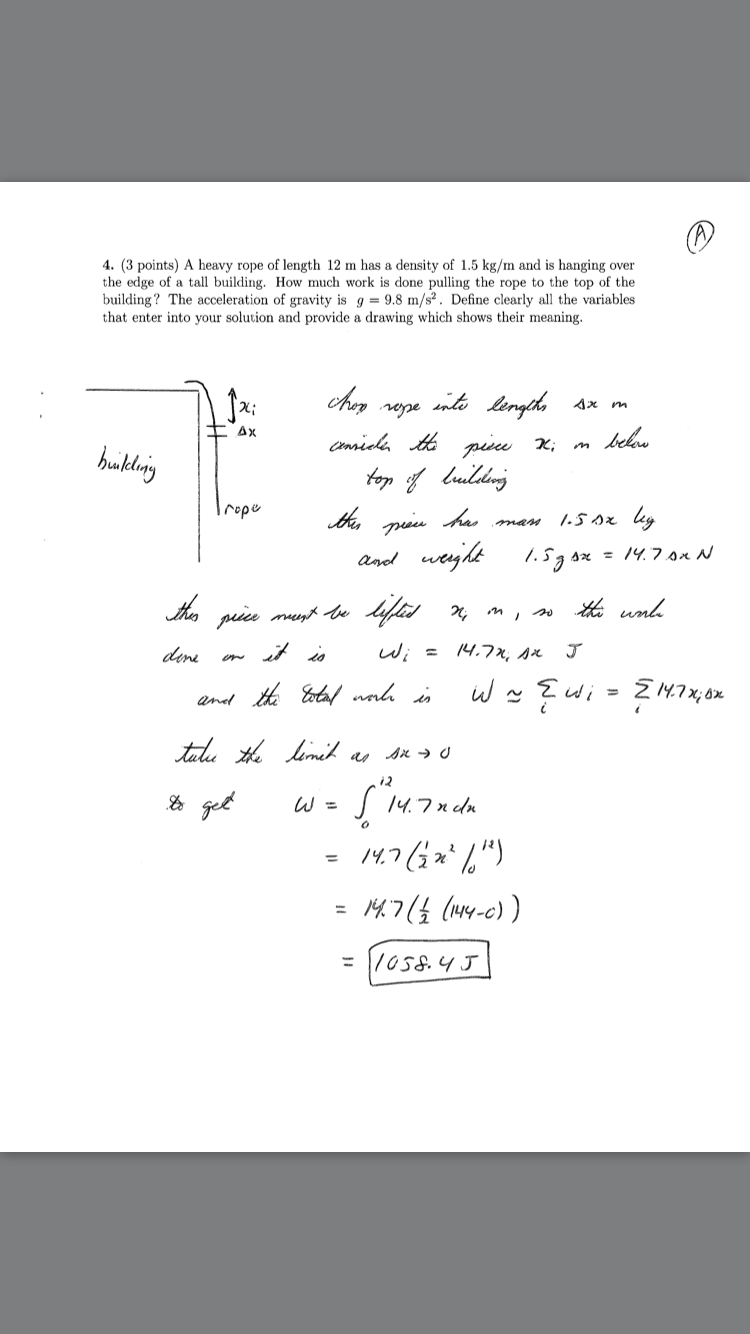 A
4. (3 points) A heavy rope of length 12 m has a density of 1.5 kg/m and is hanging over
the edge of a tall building. How much work is done pulling the rope to the top of the
building? The acceleration of gravity is g = 9.8 m/s². Define clearly all the variables
that enter into your solution and provide a drawing which shows their meaning.
xᵢ
Δx
building
rope
chop rope into lengths Δx m
consider the piece xᵢ m below
top of building
this piece has mass 1.5 Δx kg
and weight 1.5g Δx = 14.7 Δx N
this piece must be lifted xᵢ m, so the work
done on it is Wᵢ = 14.7xᵢ Δx J
and the total work is W ≃ Σᵢ Wᵢ = Σᵢ 14.7xᵢΔx
take the limit as Δx → 0
to get W = ∫₀¹² 14.7x dx
= 14.7(½x² |₀¹²)
= 14.7(½ (144-0))
= 1058.4 J